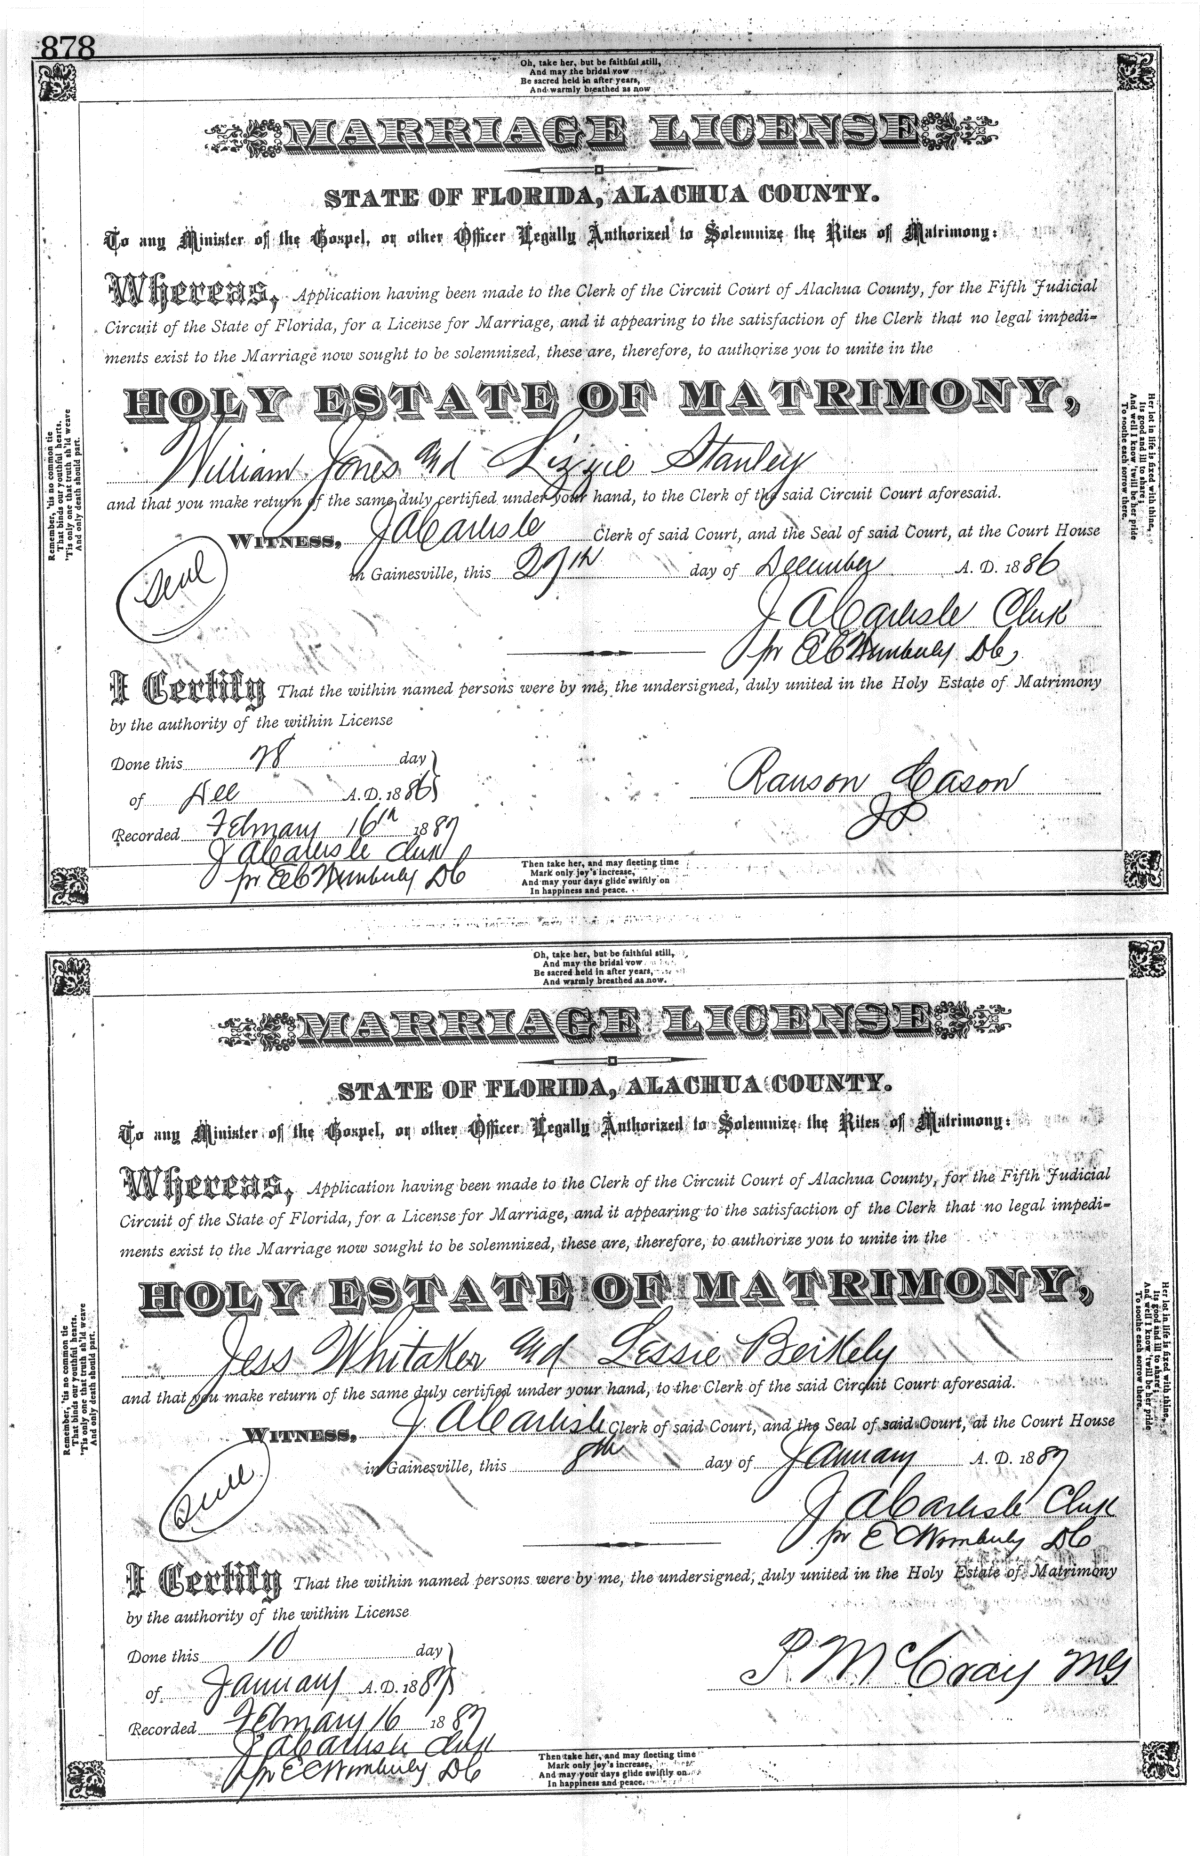 878
Oh, take her, but be faithful still,
And may the bridal vow
Be sacred held in after years,
And warmly breathed as now
MARRIAGE LICENSE
STATE OF FLORIDA, ALACHUA COUNTY.
To any Minister of the Gospel, or other Officer Legally Authorized to Solemnize the Rites of Matrimony:
Whereas, Application having been made to the Clerk of the Circuit Court of Alachua County, for the Fifth Judicial
Circuit of the State of Florida, for a License for Marriage, and it appearing to the satisfaction of the Clerk that no legal impedi-
ments exist to the Marriage now sought to be solemnized, these are, therefore, to authorize you to unite in the
HOLY ESTATE OF MATRIMONY,
William Jones and Lizzie Stanley
and that you make return of the same duly certified under your hand, to the Clerk of the said Circuit Court aforesaid.
WITNESS, J A Carlisle Clerk of said Court, and the Seal of said Court, at the Court House
Seal
in Gainesville, this 27th day of December A. D. 1886
J A Carlisle Clerk
pr E C Wimberly DC,
I Certify That the within named persons were by me, the undersigned, duly united in the Holy Estate of Matrimony
by the authority of the within License
Done this 28 day
of Dec A.D. 1886
Ranson Cason
JP
Recorded February 16th 1887
J A Carlisle Clerk
pr E C Wimberly DC
Remember, 'tis no common tie
That binds your youthful hearts.
'Tis only one that truth sh'ld weave
And only death should part.
Her lot in life is fixed with thine,
Its good and ill to share;
And well I know 'twill be her pride
To soothe each sorrow there.
Then take her, and may fleeting time
Mark only joy's increase,
And may your days glide swiftly on
In happiness and peace.
Oh, take her, but be faithful still,
And may the bridal vow
Be sacred held in after years,
And warmly breathed as now.
MARRIAGE LICENSE
STATE OF FLORIDA, ALACHUA COUNTY.
To any Minister of the Gospel, or other Officer Legally Authorized to Solemnize the Rites of Matrimony:
Whereas, Application having been made to the Clerk of the Circuit Court of Alachua County, for the Fifth Judicial
Circuit of the State of Florida, for a License for Marriage, and it appearing to the satisfaction of the Clerk that no legal impedi-
ments exist to the Marriage now sought to be solemnized, these are, therefore, to authorize you to unite in the
HOLY ESTATE OF MATRIMONY,
Jess Whitaker and Lessie Beikely
and that you make return of the same duly certified under your hand, to the Clerk of the said Circuit Court aforesaid.
WITNESS, J A Carlisle Clerk of said Court, and the Seal of said Court, at the Court House
Seal
in Gainesville, this 8th day of January A. D. 1887
J A Carlisle Clerk
pr E C Wimberly DC
I Certify That the within named persons were by me, the undersigned, duly united in the Holy Estate of Matrimony
by the authority of the within License
Done this 10 day
of January A.D. 1887
P McCray MG
Recorded February 16 1887
J A Carlisle Clerk
pr E C Wimberly DC
Remember, 'tis no common tie
That binds your youthful hearts.
'Tis only one that truth sh'ld weave
And only death should part.
Her lot in life is fixed with thine,
Its good and ill to share;
And well I know 'twill be her pride
To soothe each sorrow there.
Then take her, and may fleeting time
Mark only joy's increase,
And may your days glide swiftly on
In happiness and peace.